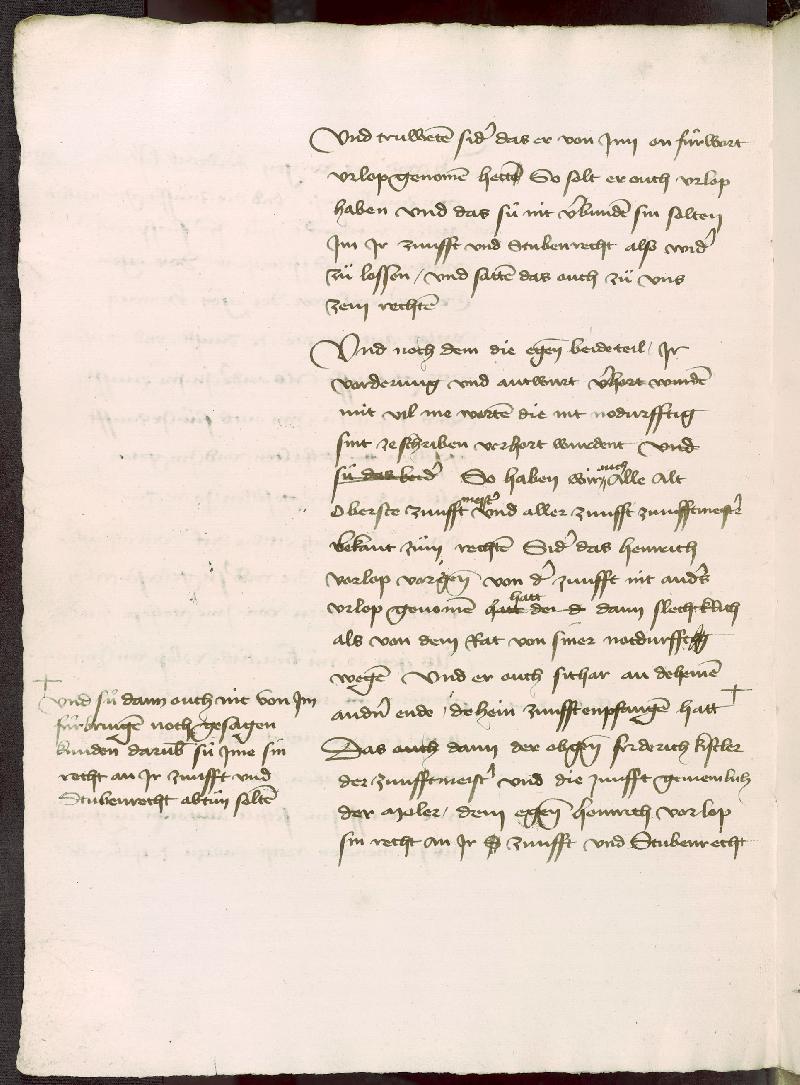 Und truweten sid' das er von Jm on fürwort
vrlop genomen hette So solt er ouch vrlop
haben Vnd das sü nit v'bunden sin solten
Jm Jr zunfft vnd Stubenrecht alß wid'
zü lossen / vnd satten das ouch zü vns
zem rechten
Und noch dem die egen̄ beideteil / Jr
vorderung vnd antwurt v'hort wurden
mit vil me worten die nit nodurfftig
sint ze schriben verhort wurdent Vnd
sü das beid' So haben wir ouch Alle Alt
Oberste zunfftmeist' Vnd aller zunfft zunfftmeist'
bekant züm rechten Sid' das heinrich
vorlop vorgen̄ von d' zunfft nit and's
vrlop genomen hatt dann slechtklich
als von dem Rat von siner notdurfft
wegen Vnd er ouch sithar an deheinē
andn' ende / dehein zunfft enpfangen hatt +
+ Vnd sü dann ouch nit von Jm
fürbringen noch gesagen
kunden darūb sü Jme sin
recht an Jr zunfft vnd
Stubenrecht abtün solten
Das ouch dann der obgen̄ friderich kistler
der zunfftmeist' Vnd die zunfft gemeinlich
der Moler / dem egen̄ heinrich vorlop
sin recht an Jr zunfft vnd Stubenrecht